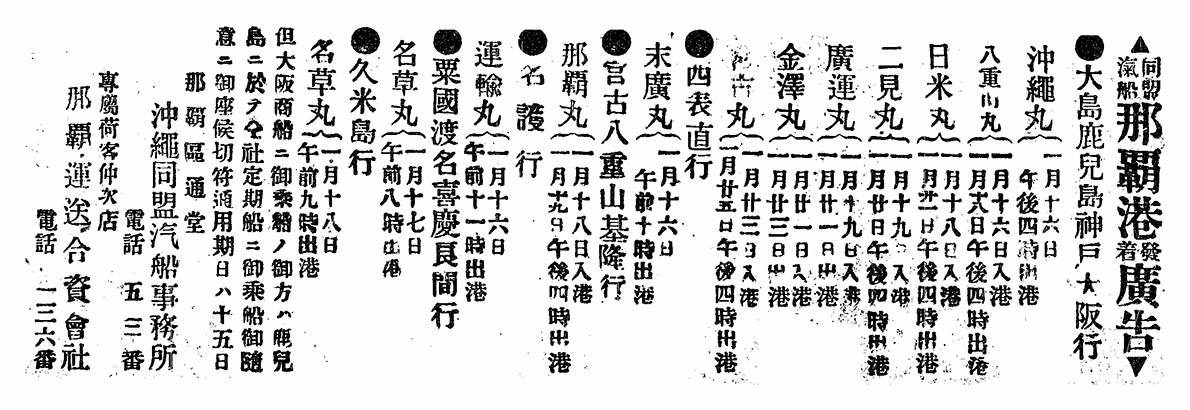 ▲同盟汽船那覇港發着廣告▼
●大島鹿兒島神戸大阪行
沖繩丸 一月十六日午後四時出港
八重山丸 一月十六日入港 一月十八日午後四時出港
日米丸 一月十八日入港 一月廿一日午後四時出港
二見丸 一月十九日入港 一月廿日午後四時出港
廣運丸 一月十九日入港 一月廿一日出港
金澤丸 一月廿一日入港 一月廿三日出港
丸 一月廿三日入港 一月廿五日午後四時出港
●西表直行
末廣丸 一月十六日午前十時出港
●宮古八重山基隆行
那覇丸 一月十八日入港 一月十九日午後四時出港
●名護行
運輸丸 一月十六日午前十一時出港
●粟國渡名喜慶良間行
名草丸 一月十七日午前八時出港
●久米島行
名草丸 一月十八日午前九時出港
但大阪商船ニ御乘船ノ御方ハ鹿兒
島ニ於テ仝社定期船ニ御乘船御隨
意ニ御座候切符通用期日ハ十五日
那覇區通堂
沖繩同盟汽船事務所
電話 五三番
專屬荷客仲次店
那覇運送合資會社
電話 一三六番